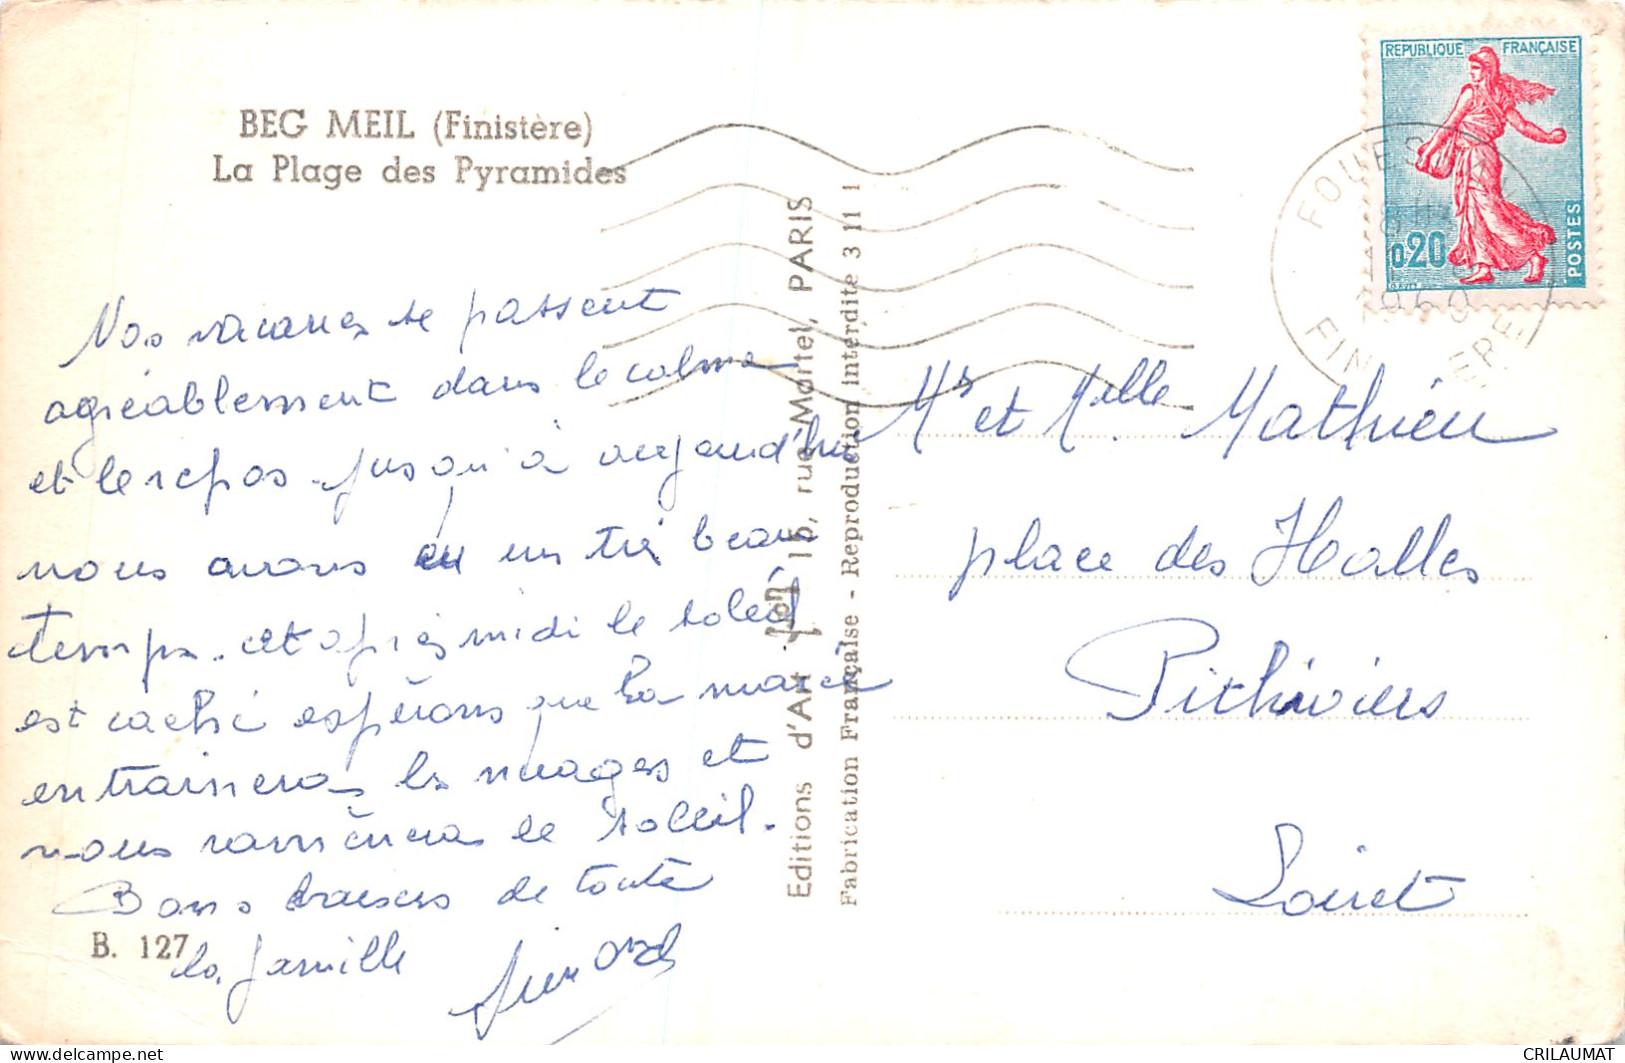 BEG MEIL (Finistère)
La Plage des Pyramides
Nos vacances se passent
agréablement dans le calme
et le repos. Jusqu'à aujourd'hui
nous avons eu un très beau
temps. cet après midi le soleil
est caché espérons que la marée
entrainera les nuages et
nous ramènera le soleil.
Bons baisers de toute
la famille
B. 127
Editions d'Art 15, rue Martel, PARIS
Fabrication Française - Reproduction interdite 3 11 1
REPUBLIQUE FRANÇAISE
0,20
POSTES
FOUES
1960
FIN ERE
Mr et Melle Mathieu
place des Halles
Pithiviers
Loiret
delcampe.net
CRILAUMAT